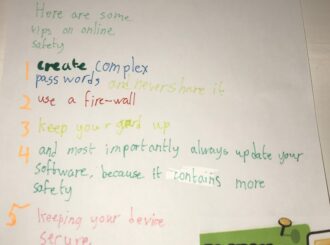 Here are some
tips on online
safety
1 create complex
passwords and never share it
2 use a fire-wall
3 keep your gard up
4 and most importantly always update your
software, because it contains more
safety
5 keeping your device
secure.